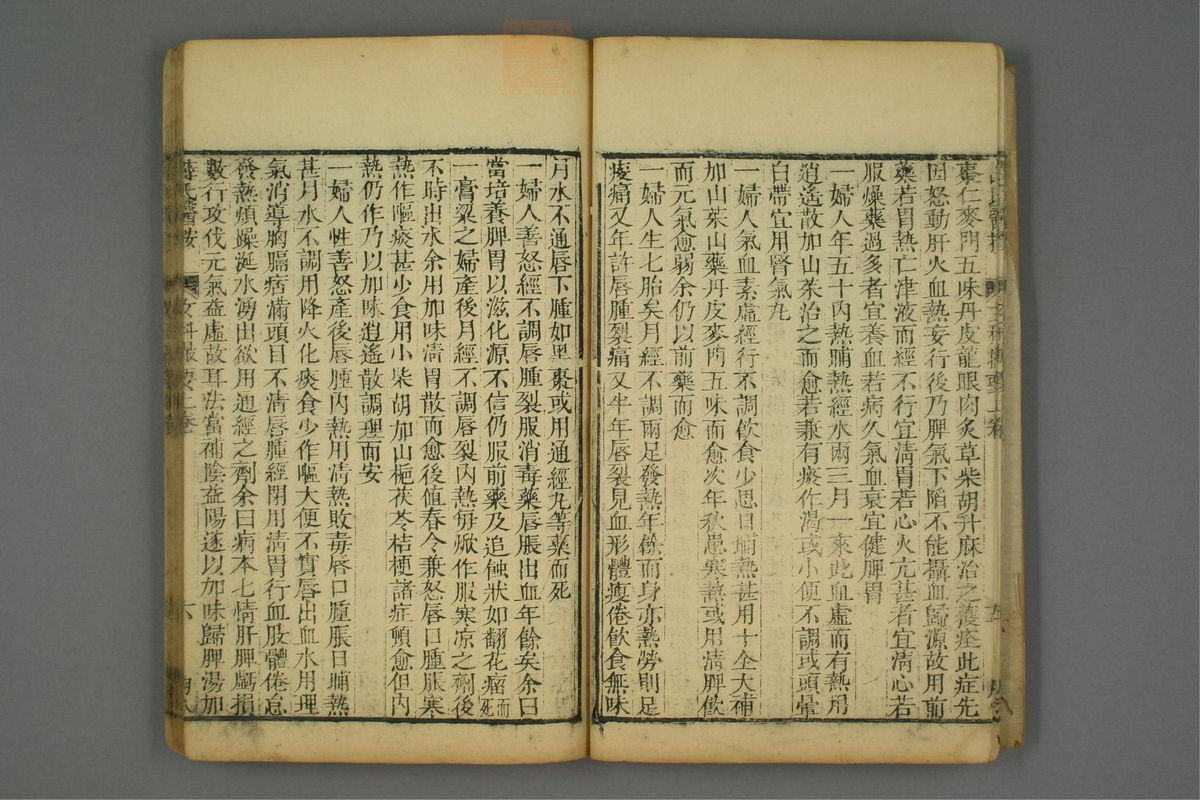 棗仁麥門五味丹皮龍眼肉炙草柴胡升麻治之獲痊此症先
因怒動肝火血熱妄行後乃脾氣下陷不能攝血歸源故用前
藥若胃熱亡津液而經不行宜清胃若心火亢甚者宜清心若
服燥藥過多者宜養血若病久氣血衰宜健脾胃
一婦人年五十內熱晡熱經水兩三月一來此血虛而有熱用
逍遙散加山茱治之而愈若兼有痰作渴或小便不調或頭暈
白帶宜用腎氣丸
一婦人氣血素虛經行不調飲食少思日晡熱甚用十全大補
加山茱山藥丹皮麥門五味而愈次年秋患寒熱或用清脾飲
而元氣愈弱余仍以前藥而愈
一婦人生七胎矣月經不調兩足發熱年餘而身亦熱勞則足
痠痛又年許唇腫裂痛又半年唇裂見血形體瘦倦飲食無味
月水不通唇下腫如黑棗或用通經丸等藥而死
一婦人善怒經不調唇腫裂服消毒藥唇脹出血年餘矣余曰
當培養脾胃以滋化源不信仍服前藥及追蝕狀如翻花瘤而死
一膏粱之婦產後月經不調唇裂內熱每焮作服寒凉之劑後
不時出水余用加味清胃散而愈後值春令兼怒唇口腫脹寒
熱作嘔痰甚少食用小柴胡加山梔茯苓桔梗諸症頓愈但內
熱仍作乃以加味逍遙散調理而安
一婦人性善怒產後唇腫內熱用清熱敗毒唇口腫脹日晡熱
甚月水不調用降火化痰食少作嘔大便不實唇出血水用理
氣消導胸膈痞滿頭目不清唇腫經閉用清胃行血肢體倦怠
發熱煩躁涎水湧出欲用通經之劑余曰病本七情肝脾虧損
數行攻伐元氣益虛故耳法當補陰益陽遂以加味歸脾湯加
薛氏醫按 女科撮要上卷 六